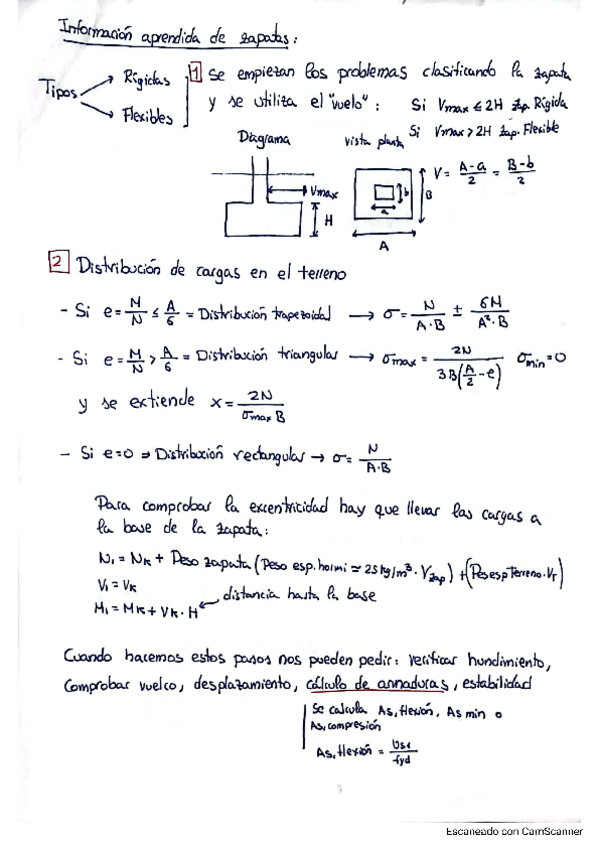 Información aprendida de zapatas:
Tipos → Rígidas
→ Flexibles
1 Se empiezan los problemas clasificando la zapata
y se utiliza el "vuelo": Si Vmax ≤ 2H zap. Rígida
Si Vmax > 2H zap. Flexible
Diagrama
vista planta
V = A-a/2 = B-b/2
Vmax
H
b
a
B
A
2 Distribución de cargas en el terreno
- Si e = M/N ≤ A/6 = Distribución trapezoidal → σ = N/A·B ± 6M/A²·B
- Si e = M/N > A/6 = Distribución triangular → σmax = 2N/3B(A/2 - e) σmin = 0
y se extiende x = 2N/σmax B
- Si e=0 ⇒ Distribución rectangular → σ = N/A·B
Para comprobar la excentricidad hay que llevar las cargas a
la base de la zapata:
N1 = Nk + Peso zapata (Peso esp. hormi = 25kg/m³ · Vzap) + (Pesesp Terreno · VT)
V1 = Vk
M1 = Mk + Vk · H ← distancia hasta la base
Cuando hacemos estos pasos nos pueden pedir: verificar hundimiento,
comprobar vuelco, desplazamiento, cálculo de armaduras, estabilidad
Se calcula As, flexión, As min o
As, compresión
As, flexión = Us1/fyd
Escaneado con CamScanner